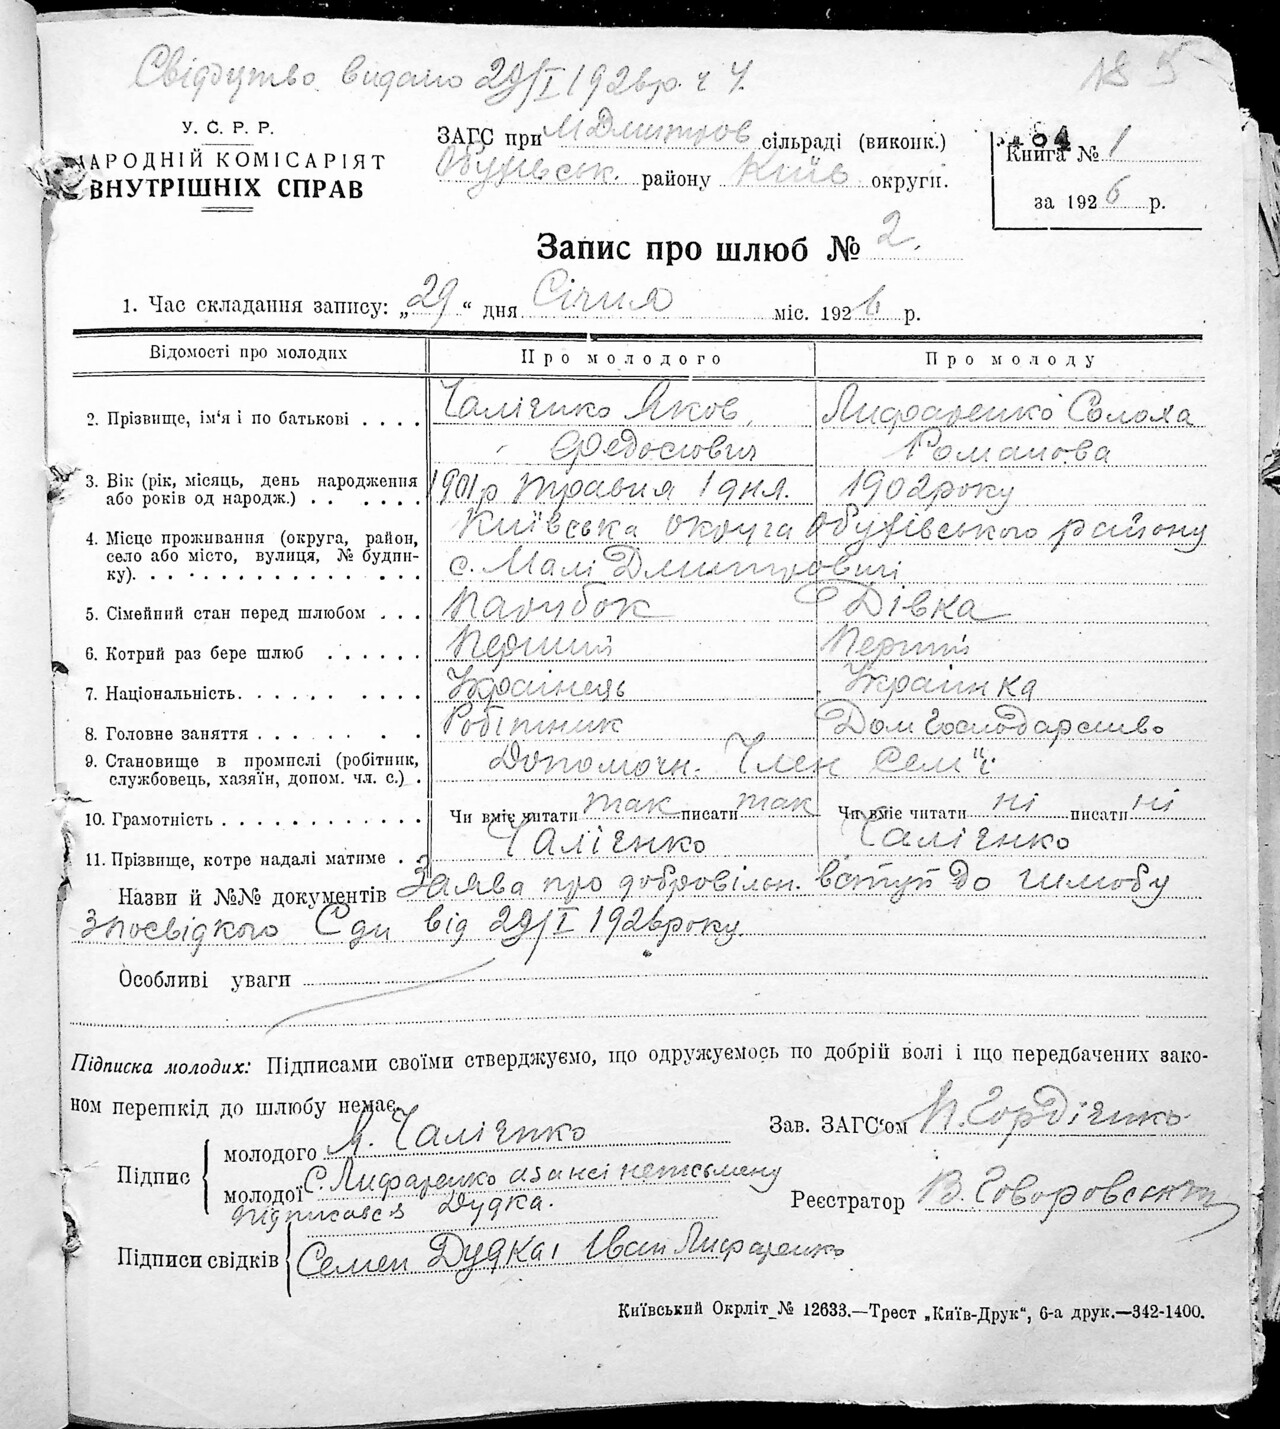 Свідоцтво видано 29/I 1926р. ч 4.
У. С. Р. Р.
НАРОДНІЙ КОМІСАРІЯТ
ВНУТРІШНІХ СПРАВ
ЗАГС при М Дмитров сільраді (виконк.)
Обухівськ. району Київ округи.
Книга № 1
за 1926 р.
Запис про шлюб № 2.
1. Час складання запису: „29“ дня Січня міс. 1926 р.
Відомості про молодих Про молодого Про молоду
2. Прізвище, ім'я і по батькові . . . . Галіченко Яков Федосіович Лифаренко Солоха Романова
3. Вік (рік, місяць, день народження або років од народж.) . . . . . . 1901р травня 1 дня. 1902 року
4. Місце проживання (округа, район, село або місто, вулиця, № будинку). Київська округа Обухівського району
с. Малі Дмитровичі
5. Сімейний стан перед шлюбом . . . Парубок Дівка
6. Котрий раз бере шлюб . . . . . . Перший Перший
7. Національність. . . . . . . . . Українець Українка
8. Головне заняття . . . . . . . . Робітник Дом господарство
9. Становище в промислі (робітник, службовець, хазяїн, допом. чл. с.) . Допомочн. Член Сем"ї
10. Грамотність . . . . . . . . . . . . Чи вміє читати так писати так Чи вміє читати ні писати ні
11. Прізвище, котре надалі матиме . . Галіченко Галіченко
Назви й №№ документів Заява про добровільн. вступ до шлюбу
з посвідкою С ди від 29/I 1926 року.
Особливі уваги
Підписка молодих: Підписами своїми стверджуємо, що одружуємось по добрій волі і що передбачених зако-
ном перешкід до шлюбу немає.
Підпис
молодого Я. Галіченко
молодої С. Лифаренко а за неї неписьмену
підписався Дудка.
Зав. ЗАГС'ом П. Гордієнко
Реєстратор В. Говоровський
Підписи свідків Семен Дудка і Іван Лифаренко
Київський Окрліт № 12633.—Трест „Київ-Друк“, 6-а друк.—342-1400.